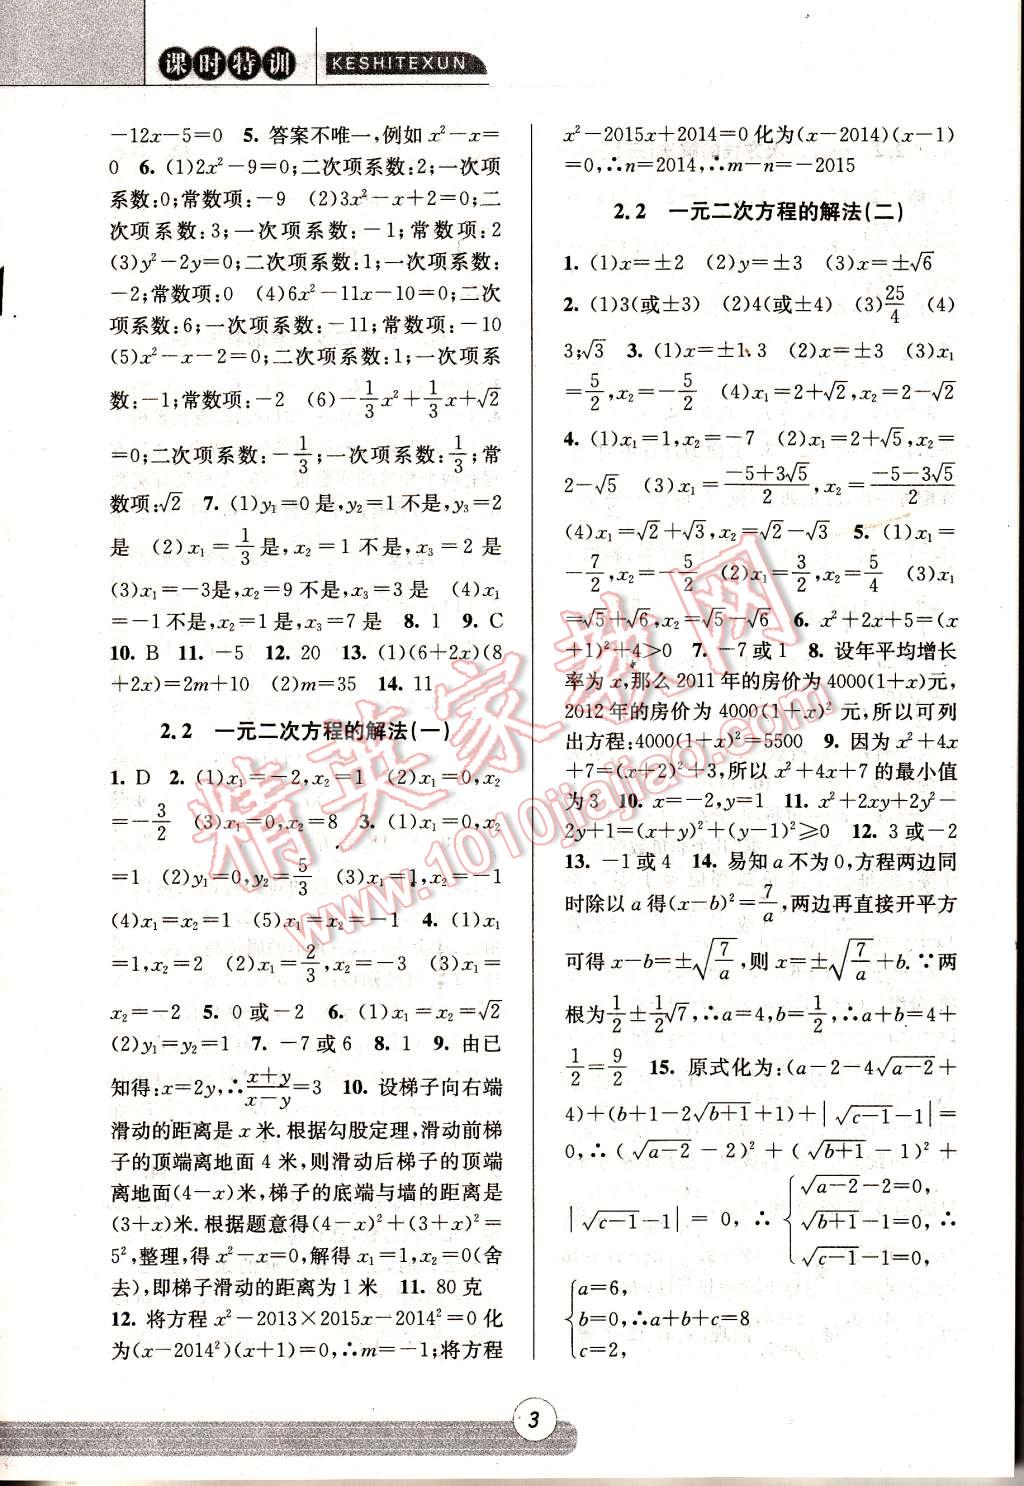 课时特训
KESHITEXUN
-12x-5=0 5. 答案不唯一,例如 x²-x=
0 6. (1)2x²-9=0;二次项系数:2;一次项
系数:0;常数项:-9 (2)3x²-x+2=0;二
次项系数:3;一次项系数:-1;常数项:2
(3)y²-2y=0;二次项系数:1;一次项系数:
-2;常数项:0 (4)6x²-11x-10=0;二次
项系数:6;一次项系数:-11;常数项:-10
(5)x²-x-2=0;二次项系数:1;一次项系
数:-1;常数项:-2 (6)-1/3x²+1/3x+√2
=0;二次项系数:-1/3;一次项系数:1/3;常
数项:√2 7. (1)y₁=0是,y₂=1不是,y₃=2
是 (2)x₁=1/3是,x₂=1不是,x₃=2是
(3)x₁=-3是,x₂=9不是,x₃=3是 (4)x₁
=-1不是,x₂=1是,x₃=7是 8. 1 9. C
10. B 11. -5 12. 20 13. (1)(6+2x)(8
+2x)=2m+10 (2)m=35 14. 11
2.2 一元二次方程的解法(一)
1. D 2. (1)x₁=-2,x₂=1 (2)x₁=0,x₂
=-3/2 (3)x₁=0,x₂=8 3. (1)x₁=0,x₂
=1 (2)y₁=0,y₂=5/3 (3)x₁=1,x₂=-1
(4)x₁=x₂=1 (5)x₁=x₂=-2 4. (1)x₁
=1,x₂=2 (2)x₁=2/3,x₂=-3 (3)x₁=
x₂=-2 5. 0或-2 6. (1)x₁=x₂=√2
(2)y₁=y₂=1 7. -7或6 8. 1 9. 由已
知得:x=2y,∴(x+y)/(x-y)=3 10. 设梯子向右端
滑动的距离是 x 米.根据勾股定理,滑动前梯
子的顶端离地面 4 米,则滑动后梯子的顶端
离地面(4-x)米,梯子的底端与墙的距离是
(3+x)米.根据题意得(4-x)²+(3+x)²=
5²,整理,得 x²-x=0,解得 x₁=1,x₂=0(舍
去),即梯子滑动的距离为 1 米 11. 80 克
12. 将方程 x²-2013×2015x-2014²=0 化
为(x-2014²)(x+1)=0,∴m=-1;将方程
x²-2015x+2014=0化为(x-2014)(x-1)
=0,∴n=2014,∴m-n=-2015
2.2 一元二次方程的解法(二)
1. (1)x=±2 (2)y=±3 (3)x=±√6
2. (1)3(或±3) (2)4(或±4) (3)25/4 (4)
3;√3 3. (1)x=±1.3 (2)x=±3 (3)x₁
=5/2,x₂=-5/2 (4)x₁=2+√2,x₂=2-√2
4. (1)x₁=1,x₂=-7 (2)x₁=2+√5,x₂=
2-√5 (3)x₁=(-5+3√5)/2,x₂=(-5-3√5)/2
(4)x₁=√2+√3,x₂=√2-√3 5. (1)x₁=
-7/2,x₂=-5/2 (2)x₁=3/2,x₂=5/4 (3)x₁
=√5+√6,x₂=√5-√6 6. x²+2x+5=(x
+1)²+4>0 7. -7或1 8. 设年平均增长
率为 x,那么 2011 年的房价为 4000(1+x)元,
2012 年的房价为 4000(1+x)² 元,所以可列
出方程:4000(1+x)²=5500 9. 因为 x²+4x
+7=(x+2)²+3,所以 x²+4x+7 的最小值
为 3 10. x=-2,y=1 11. x²+2xy+2y²-
2y+1=(x+y)²+(y-1)²≥0 12. 3或-2
13. -1或4 14. 易知 a 不为 0,方程两边同
时除以 a 得(x-b)²=7/a,两边再直接开平方
可得 x-b=±√(7/a),则 x=±√(7/a)+b.∵两
根为1/2±1/2√7,∴a=4,b=1/2,∴a+b=4+
1/2=9/2 15. 原式化为:(a-2-4√(a-2)+
4)+(b+1-2√(b+1)+1)+|√(c-1)-1|=
0,∴(√(a-2)-2)²+(√(b+1)-1)²+
|√(c-1)-1|=0,∴{√(a-2)-2=0, √(b+1)-1=0, √(c-1)-1=0, ∴
{a=6, b=0, c=2, ∴a+b+c=8
3
精英家教网
www.1010jiajiao.com